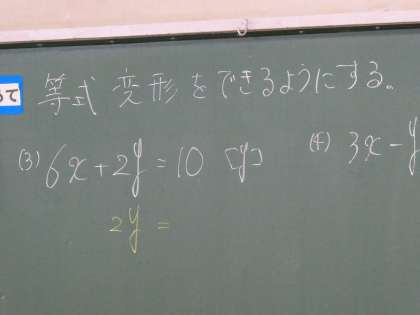 等式変形をできるようにする。
(3) 6x+2y=10 [y]
(4) 3x-y
2y=